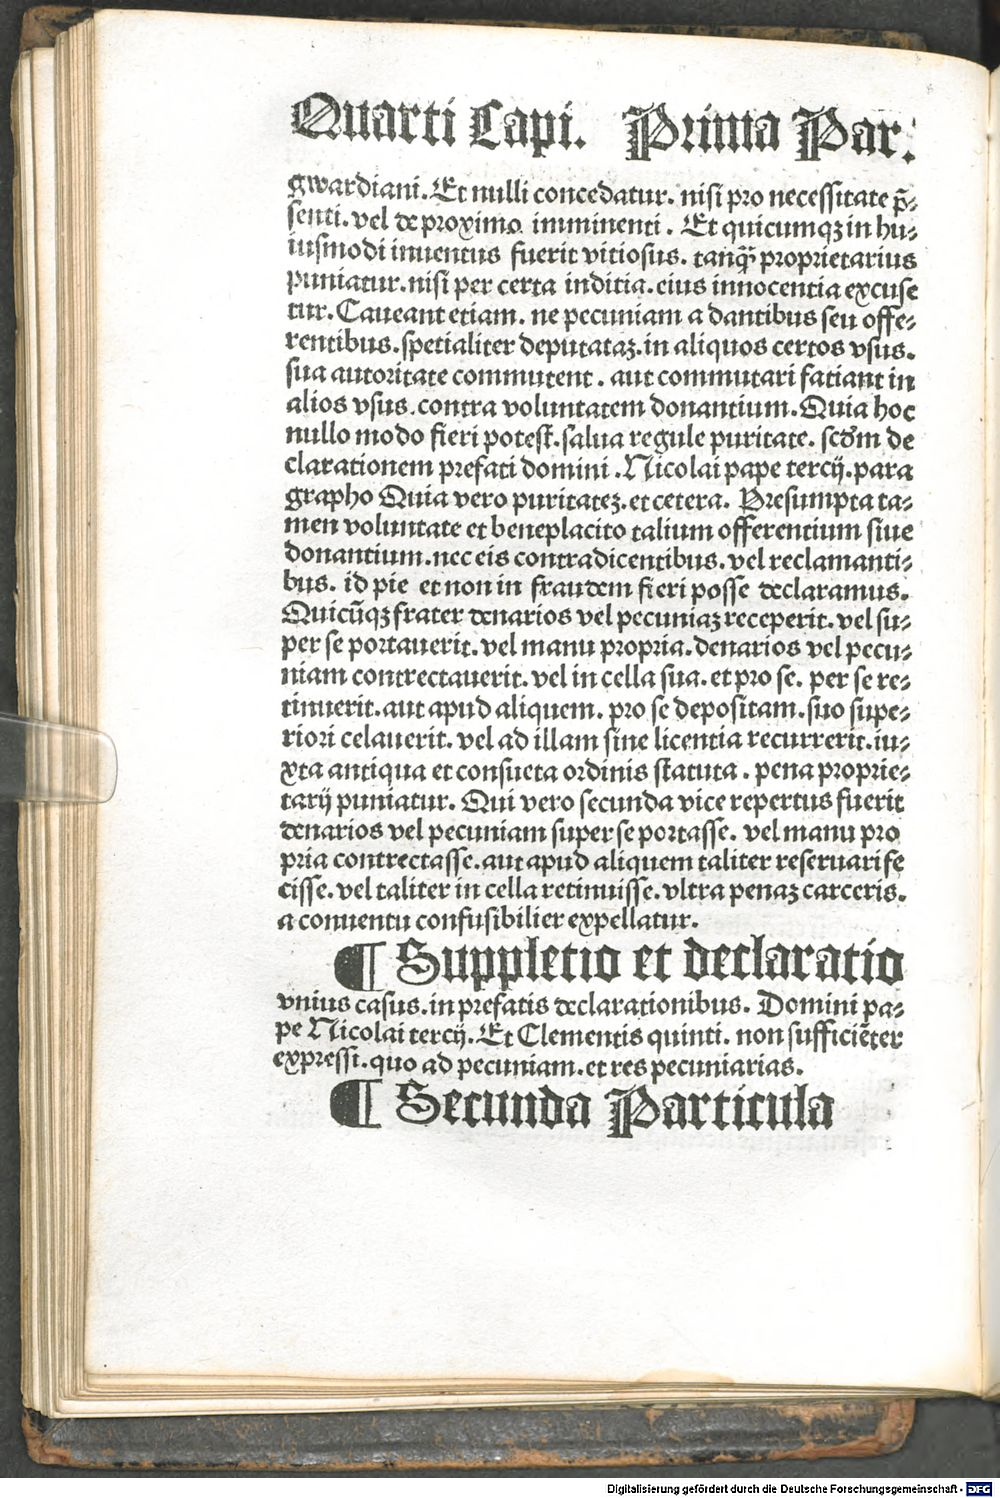 Quarti Capi. Prima Par.
gwardiani. Et nulli concedatur. nisi pro necessitate p̄⸗
senti. vel de proximo imminenti. Et quicumqꝫ in hu⸗
iusmodi inuentus fuerit vitiosus. tanq̄ proprietarius
puniatur. nisi per certa inditia. eius innocentia excuse
tur. Caueant etiam. ne pecuniam a dantibus seu offe⸗
rentibus. spetialiter deputataꝫ. in aliquos certos vsus.
sua autoritate commutent. aut commutari fatiant in
alios vsus. contra voluntatem donantium. Quia hoc
nullo modo fieri potest. salua regule puritate. scd̄m de
clarationem prefati domini. Nicolai pape tercij. para
grapho Quia vero puritateꝫ. et cetera. Presumpta ta⸗
men voluntate et beneplacito talium offerentium siue
donantium. nec eis contradicentibus. vel reclamanti⸗
bus. id pie et non in fraudem fieri posse declaramus.
Quicūqꝫ frater denarios vel pecuniaꝫ receperit. vel su⸗
per se portauerit. vel manu propria. denarios vel pecu⸗
niam contrectauerit. vel in cella sua. et pro se. per se re⸗
tinuerit. aut apud aliquem. pro se depositam. suo supe⸗
riori celauerit. vel ad illam sine licentia recurrerit. iu⸗
xta antiqua et consueta ordinis statuta. pena proprie⸗
tarij puniatur. Qui vero secunda vice repertus fuerit
denarios vel pecuniam super se portasse. vel manu pro
pria contrectasse. aut apud aliquem taliter reseruari fe
cisse. vel taliter in cella retinuisse. vltra penaꝫ carceris.
a conuentu confusibilier expellatur.
¶ Suppletio et declaratio
vnius casus. in prefatis declarationibus. Domini pa⸗
pe Nicolai tercij. Et Clementis quinti. non sufficiēter
expressi. quo ad pecuniam. et res pecuniarias.
¶ Secunda Particula
Digitalisierung gefördert durch die Deutsche Forschungsgemeinschaft - DFG